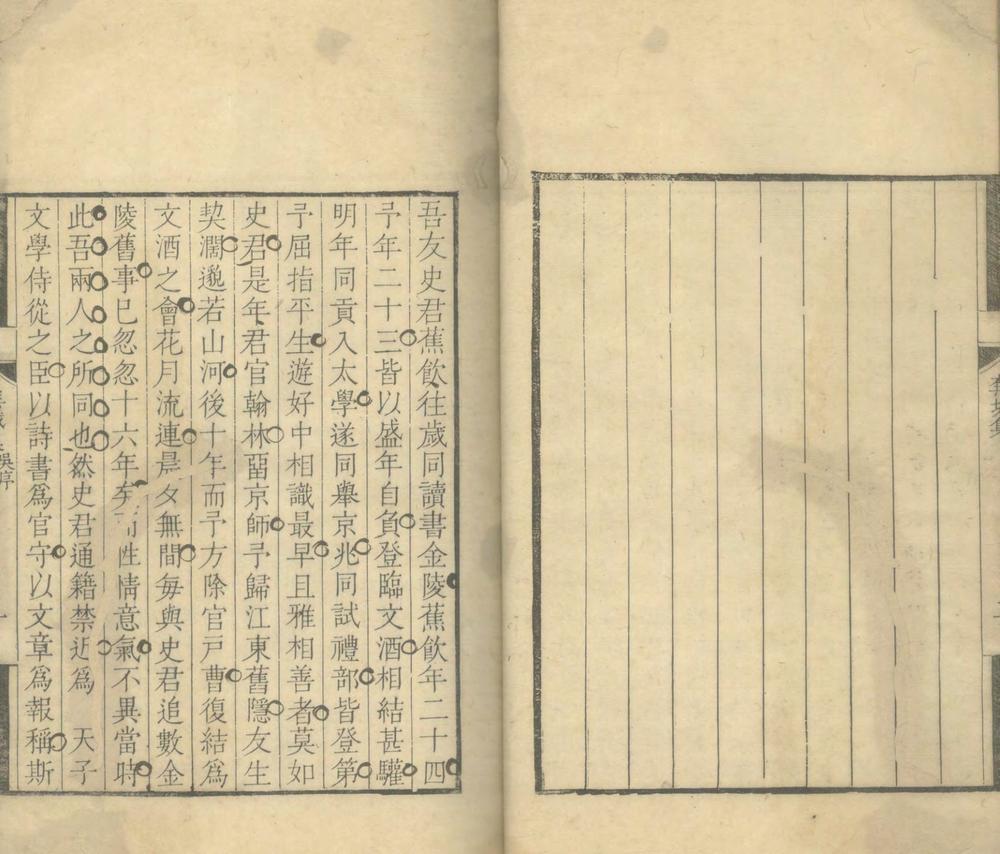 吾友史君蕉飲往歲同讀書金陵蕉飲年二十四
予年二十三皆以盛年自負登臨文酒相結甚驩
明年同貢入太學遂同舉京兆同試禮部皆登第
予屈指平生遊好中相識最早且雅相善者莫如
史君是年君官翰林畱京師予歸江東舊隱友生
契濶邈若山河後十年而予方除官戸曹復結爲
文酒之會花月流連晨夕無間每與史君追數金
陵舊事已忽忽十六年矣而性情意氣不異當時
此吾兩人之所同也然史君通籍禁近爲 天子
文學侍從之臣以詩書爲官守以文章爲報稱斯
吳序